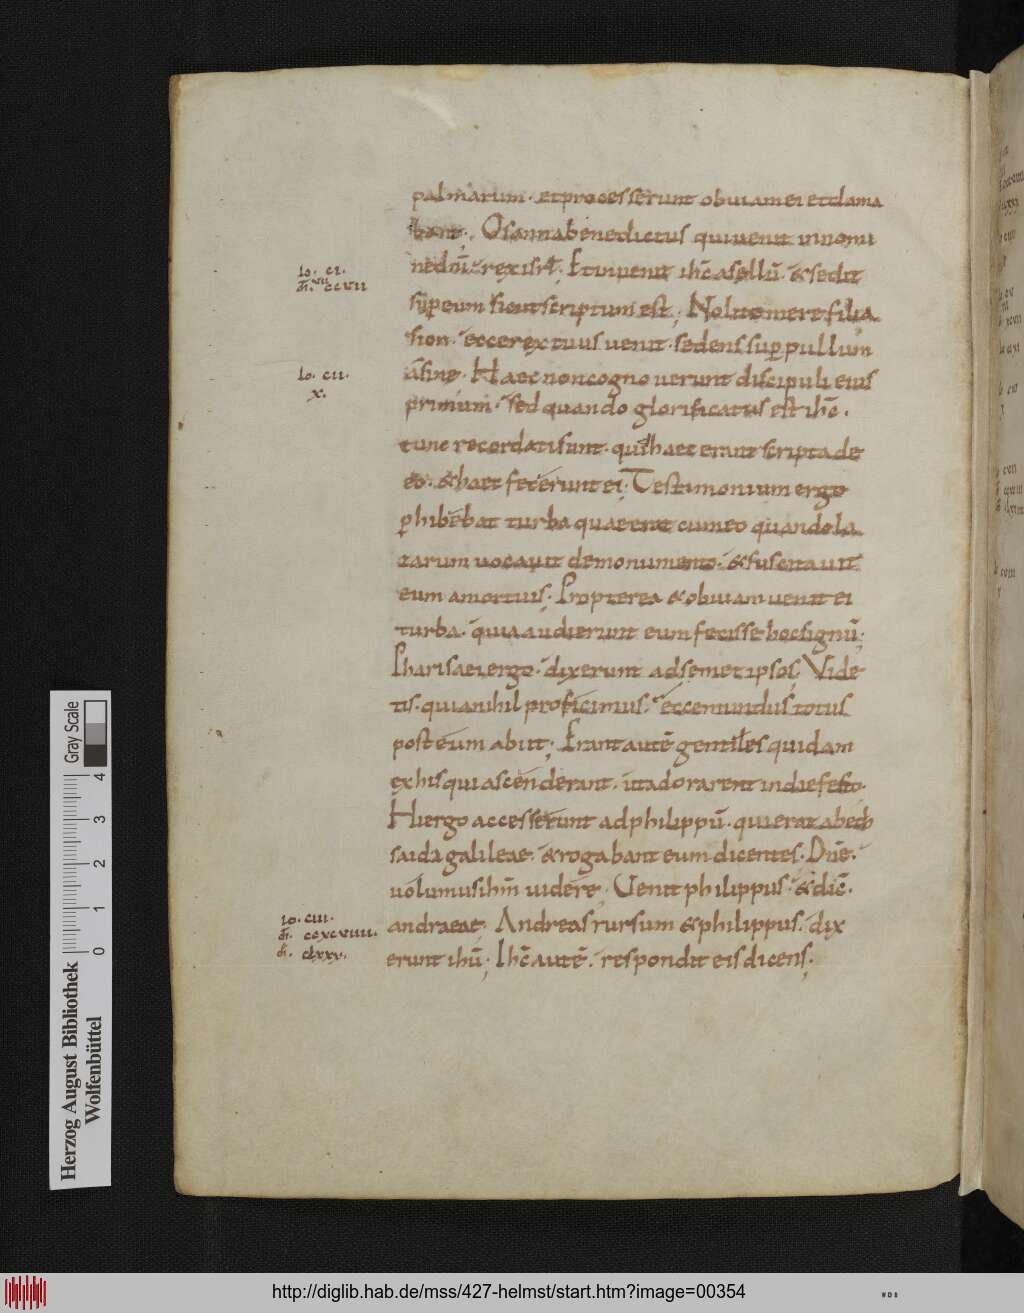 palmarum· et processerunt obuiam ei et clama
bant·, Osanna benedictus qui uenit in nomi
ne dn̄i· rex isrl̄·, Et inuenit ihc̄ asellū· & sedit
sup̱ eum sicut scriptum est·; Noli timere filia
sion· ecce rex tuus uenit· sedens sup̱ pullum
asine· Haec non cognouerunt discipuli eius
primum· sed quando glorificatus est ihc̄·
tunc recordati sunt· quia haec erant scripta de
eo· & haec fecerunt ei; Testimonium ergo
ꝑhibebat turba quae erat cum eo quando la
zarum uocauit de monumento· & suscitauit
eum a mortuis; Propterea & obuiam uenit ei
turba· quia audierunt eum fecisse hoc signū;
Pharisaei ergo· dixerunt ad semet ipsos; Vide
tis· quia nihil proficimus· ecce mundus totus
post eum abiit; Erant autē gentiles quidam
ex his qui ascenderant· ut adorarent in die festo·
Hi ergo accesserunt ad philippū· qui erat a beth
saida galileae· & rogabant eum dicentes· Dn̄e·
uolumus ihm̄ uidere; Uenit philippus· & dic̄·
andraeae; Andreas rursum & philippus· dix
erunt ihū; Ihc̄ autē· respondit eis dicens;
Io· CI·
m̄· CCVII
VII
Io· CII·
X·
Io· CIII·
m̄· CCXCVIIII·
CLXXV·
Gray Scale
0 1 2 3 4
Herzog August Bibliothek
Wolfenbüttel
http://diglib.hab.de/mss/427-helmst/start.htm?image=00354